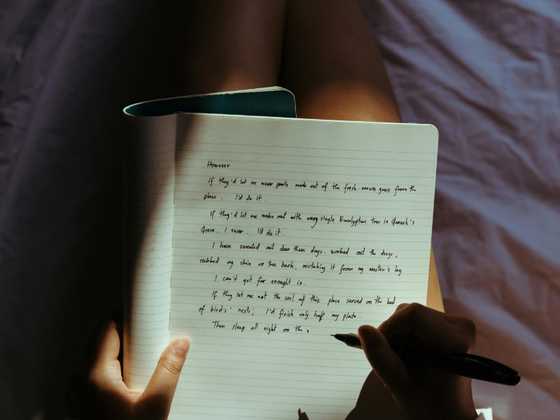 However
If they'd let me wear pants made out of the fresh grass from the
place, I'd do it.
If they'd let me make out with every single Eucalyptus tree in Queen's
I swear. I'd do it.
I have sweated out dew these days, worked out the days,
rubbed my skin on the bark, mistaking it from my master's leg
I can't get far enought is.
If they let me eat the soil of this place served on the bed
of birds' nests; I'd finish only half my plate.
Then sleep all night on the